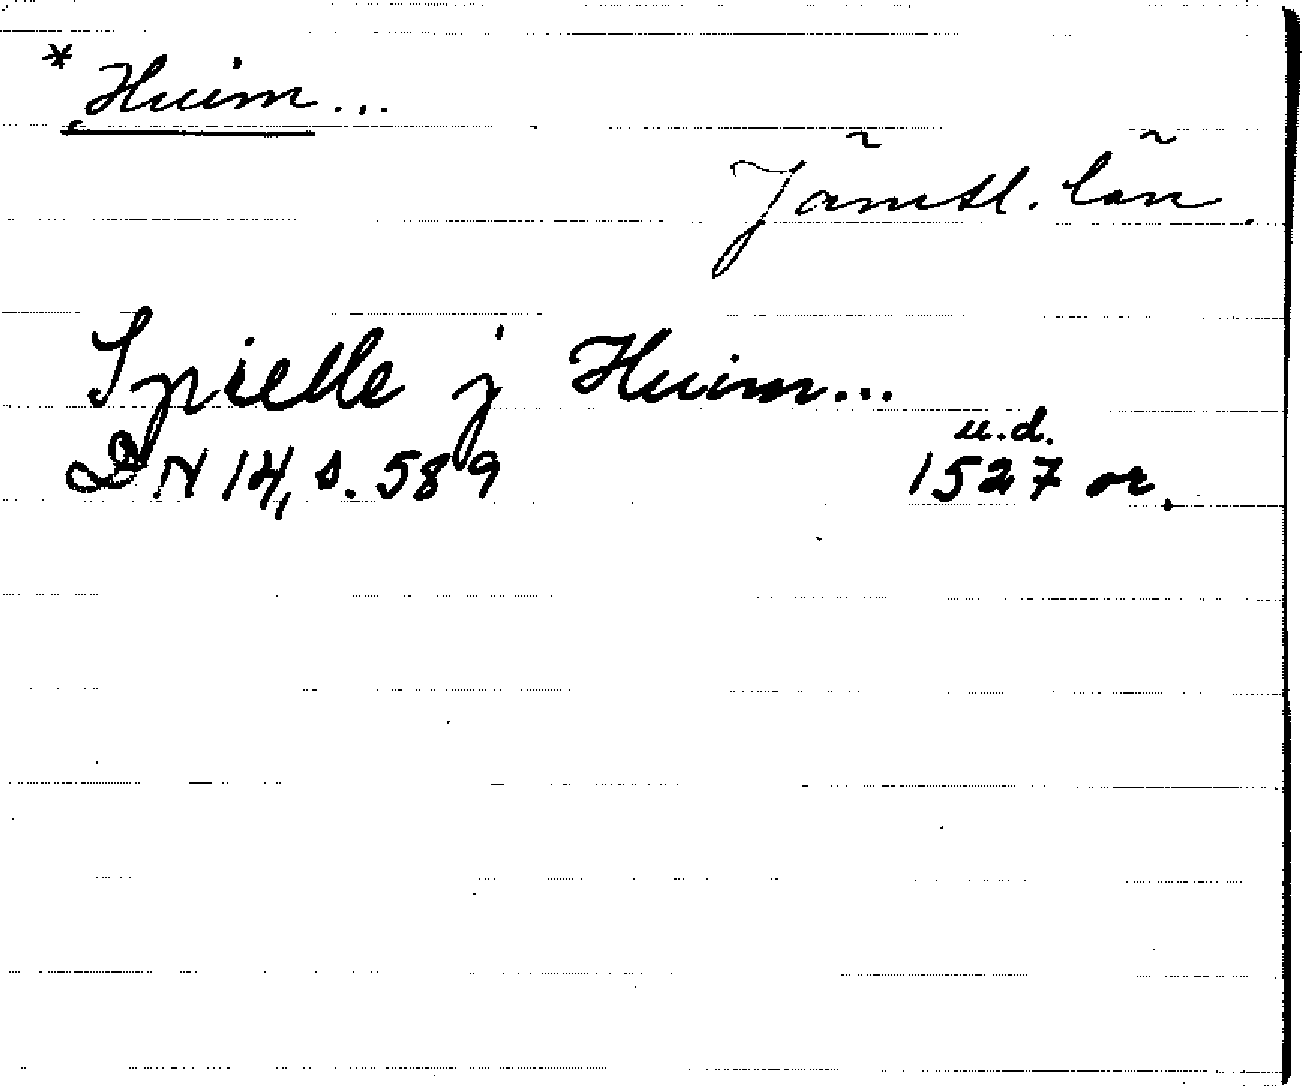 * Huim...
Jämtl. län.
Spielle j Huim...
u.d.
DN 14, s. 589 1527 or.